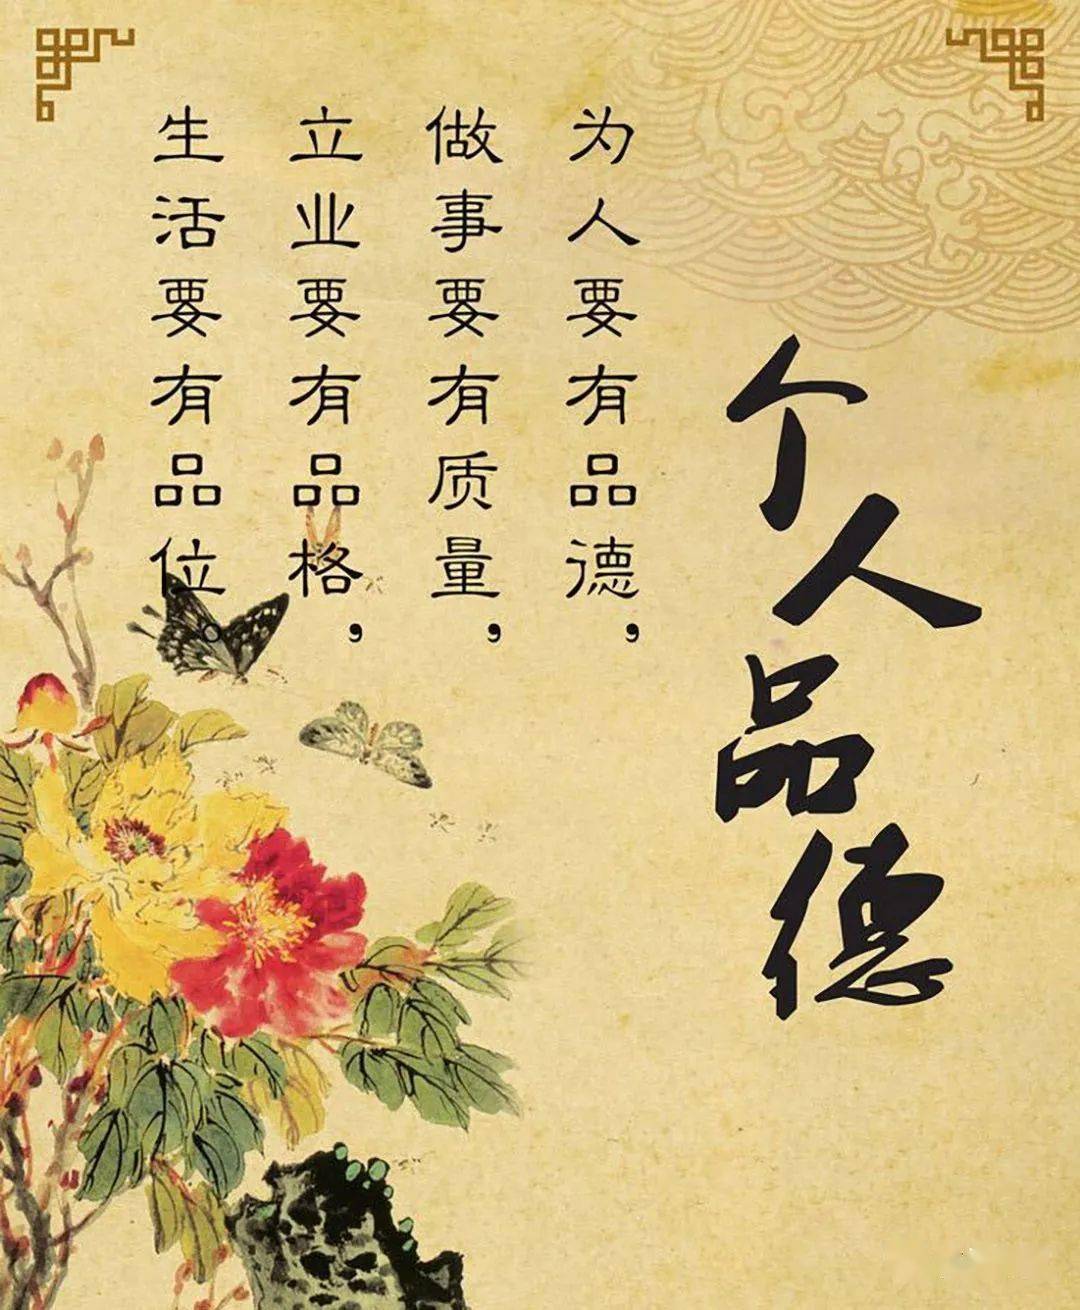 个人品德
为人要有品德，
做事要有质量，
立业要有品格，
生活要有品位。